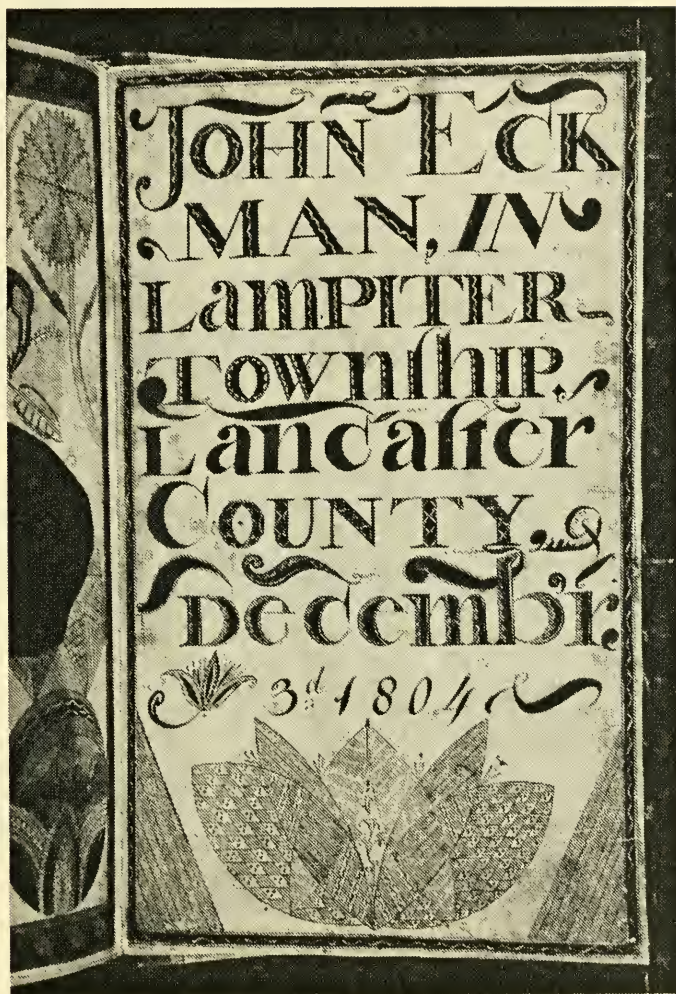 JOHN ECK
MAN, IN
LamPITER-
TOWnſhIP.
Lancaſter
COUNTY.
Decemb'r.
3d 1804